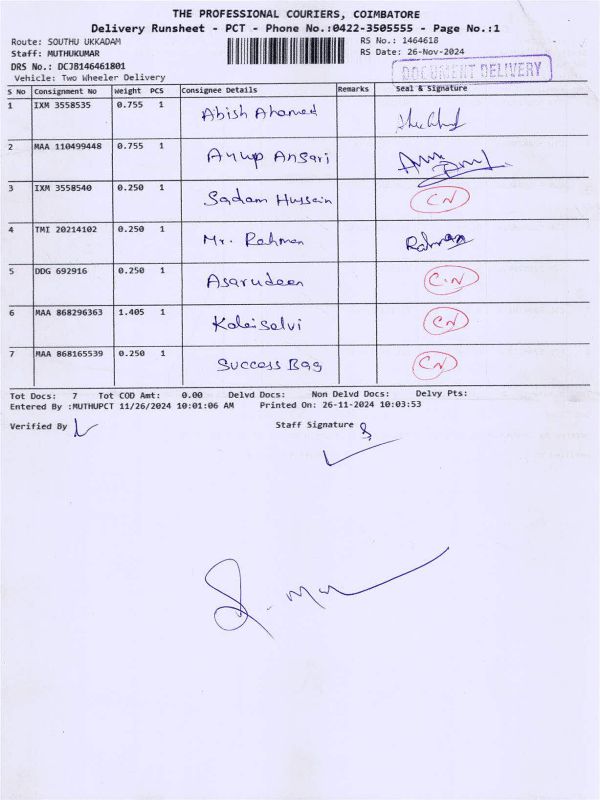 THE PROFESSIONAL COURIERS, COIMBATORE
Delivery Runsheet - PCT - Phone No.:0422-3505555 - Page No.:1
Route: SOUTHU UKKADAM RS No.: 1464618
Staff: MUTHUKUMAR RS Date: 26-Nov-2024
DRS No.: DCJB146461801
DOCUMENT DELIVERY
Vehicle: Two Wheeler Delivery
S No Consignment No Weight PCS Consignee Details Remarks Seal & Signature
1 IXM 3558535 0.755 1 Abish Ahamed
2 MAA 110499448 0.755 1 Anup Ansari
3 IXM 3558540 0.250 1 Sadam Hussain CN
4 TMI 20214102 0.250 1 Mr. Rahman Rahman
5 DDG 692916 0.250 1 Asarudeen C.N
6 MAA 868296363 1.405 1 Kalaiselvi CN
7 MAA 868165539 0.250 1 Success Bag CN
Tot Docs: 7 Tot COD Amt: 0.00 Delvd Docs: Non Delvd Docs: Delvy Pts:
Entered By :MUTHUPCT 11/26/2024 10:01:06 AM Printed On: 26-11-2024 10:03:53
Verified By Staff Signature